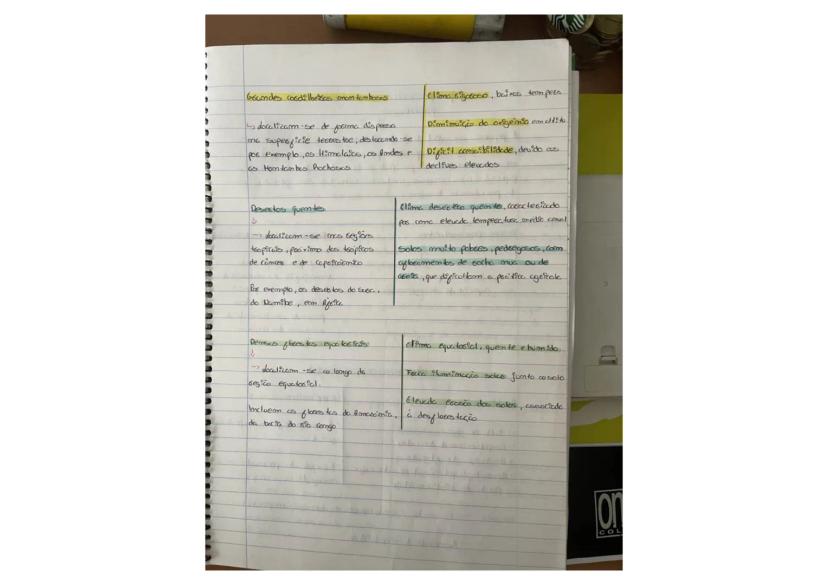 Grandes cordilheiras montanhosas
↳ localizam-se de forma dispersa
na superfície terrestre, destacando-se
por exemplo, os Himalaias, os Andes e
as Montanhas Rochosas
Clima rigoroso, baixas tempera
Diminuição do oxigénio em altitu
Difícil acessibilidade, devido aos
declives elevados
Desertos quentes
↓
→ localizam-se nas regiões
tropicais, próximo dos trópicos
de câncer e de capricórnio
Por exemplo, os desertos do Saara,
do Namibe, em África
Clima desértico quente, caracterizado
por uma elevada temperatura média anual
Solos muito pobres, pedregosos, com
afloramentos de rocha nua ou de
areia, que dificultam a prática agrícola
Densas florestas equatoriais
↓
→ localizam-se ao longo da
região equatorial.
Incluem as florestas da Amazónia,
da bacia do rio Congo
Clima equatorial, quente e húmido
Fraca iluminação solar junto ao solo
Elevada erosão dos solos, associada
à desflorestação
on
COL